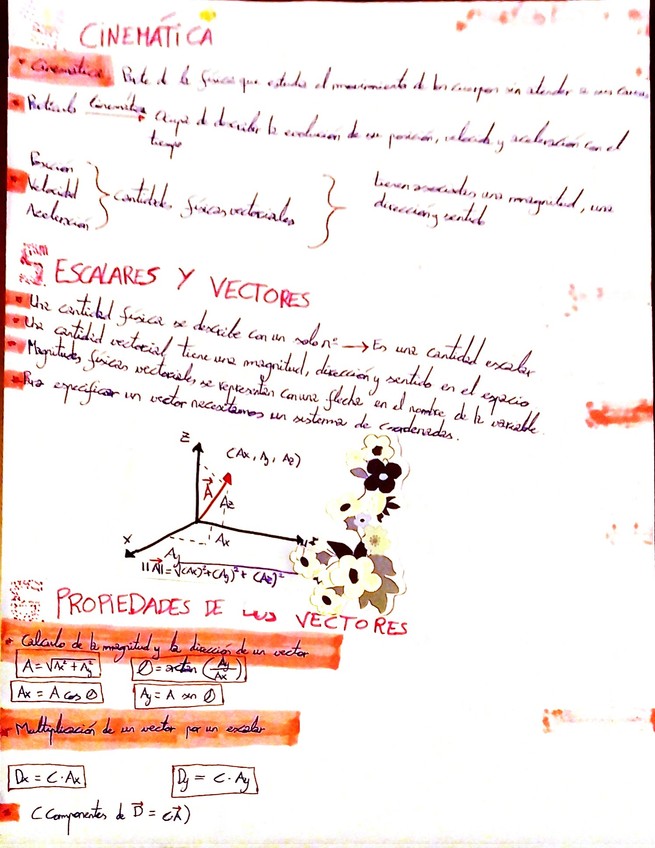 CINEMÁTICA
• Cinemática: Parte de la física que estudia el movimiento de los cuerpos sin atender a sus causas
• Partícula Cinemática → Ocupa de describir la evolución de su posición, velocidad y aceleración con el
tiempo
Posición
Velocidad
Aceleración
cantidades físicas vectoriales
tienen asociadas una magnitud, una
dirección y sentido
ESCALARES Y VECTORES
• Una cantidad física se describe con un solo nº → Es una cantidad escalar
• Una cantidad vectorial tiene una magnitud, dirección y sentido en el espacio
• Magnitudes físicas vectoriales se representan con una flecha en el nombre de la variable.
• Para especificar un vector necesitamos un sistema de coordenadas.
Z
(Ax, Ay, Az)
A⃗
Az
X
Ax
Ay
||A⃗||=√(Ax)²+(Ay)²+(Az)²
PROPIEDADES DE LOS VECTORES
• Calculo de la magnitud y la dirección de un vector
A=√Ax²+Ay²
Θ=arctan (Ay/Ax)
Ax = A cos Θ
Ay = A sen Θ
- Multiplicación de un vector por un escalar
Dx = C·Ax
Dy = C·Ay
• (Componentes de D⃗ = cA⃗)